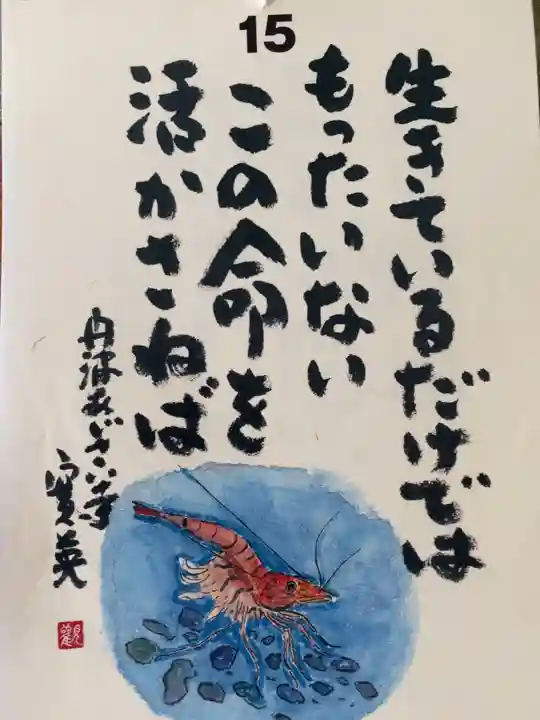 15
生きているだけでは
もったいない
この命を
活かさねば
丹波あじさい寺
寛英
觀